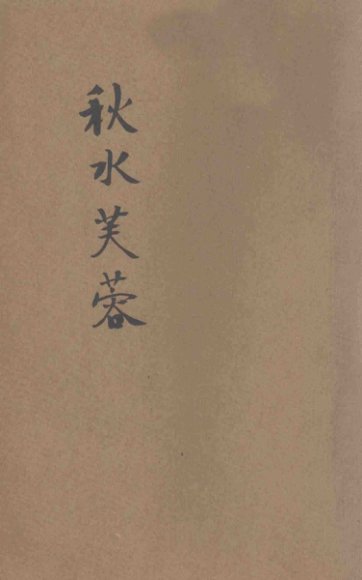 秋水芙蓉